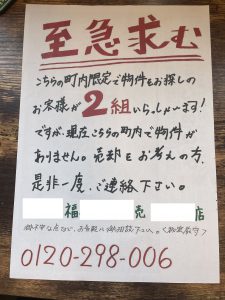 至急求む
こちらの町内限定で物件をお探しの
お客様が2組いらっしゃいます!
ですが、現在こちらの町内で物件が
ありません。売却をお考えの方、
是非一度、ご連絡下さい。
福 売 店
御不明な点など、お気軽に御相談下さい。
0120-298-006